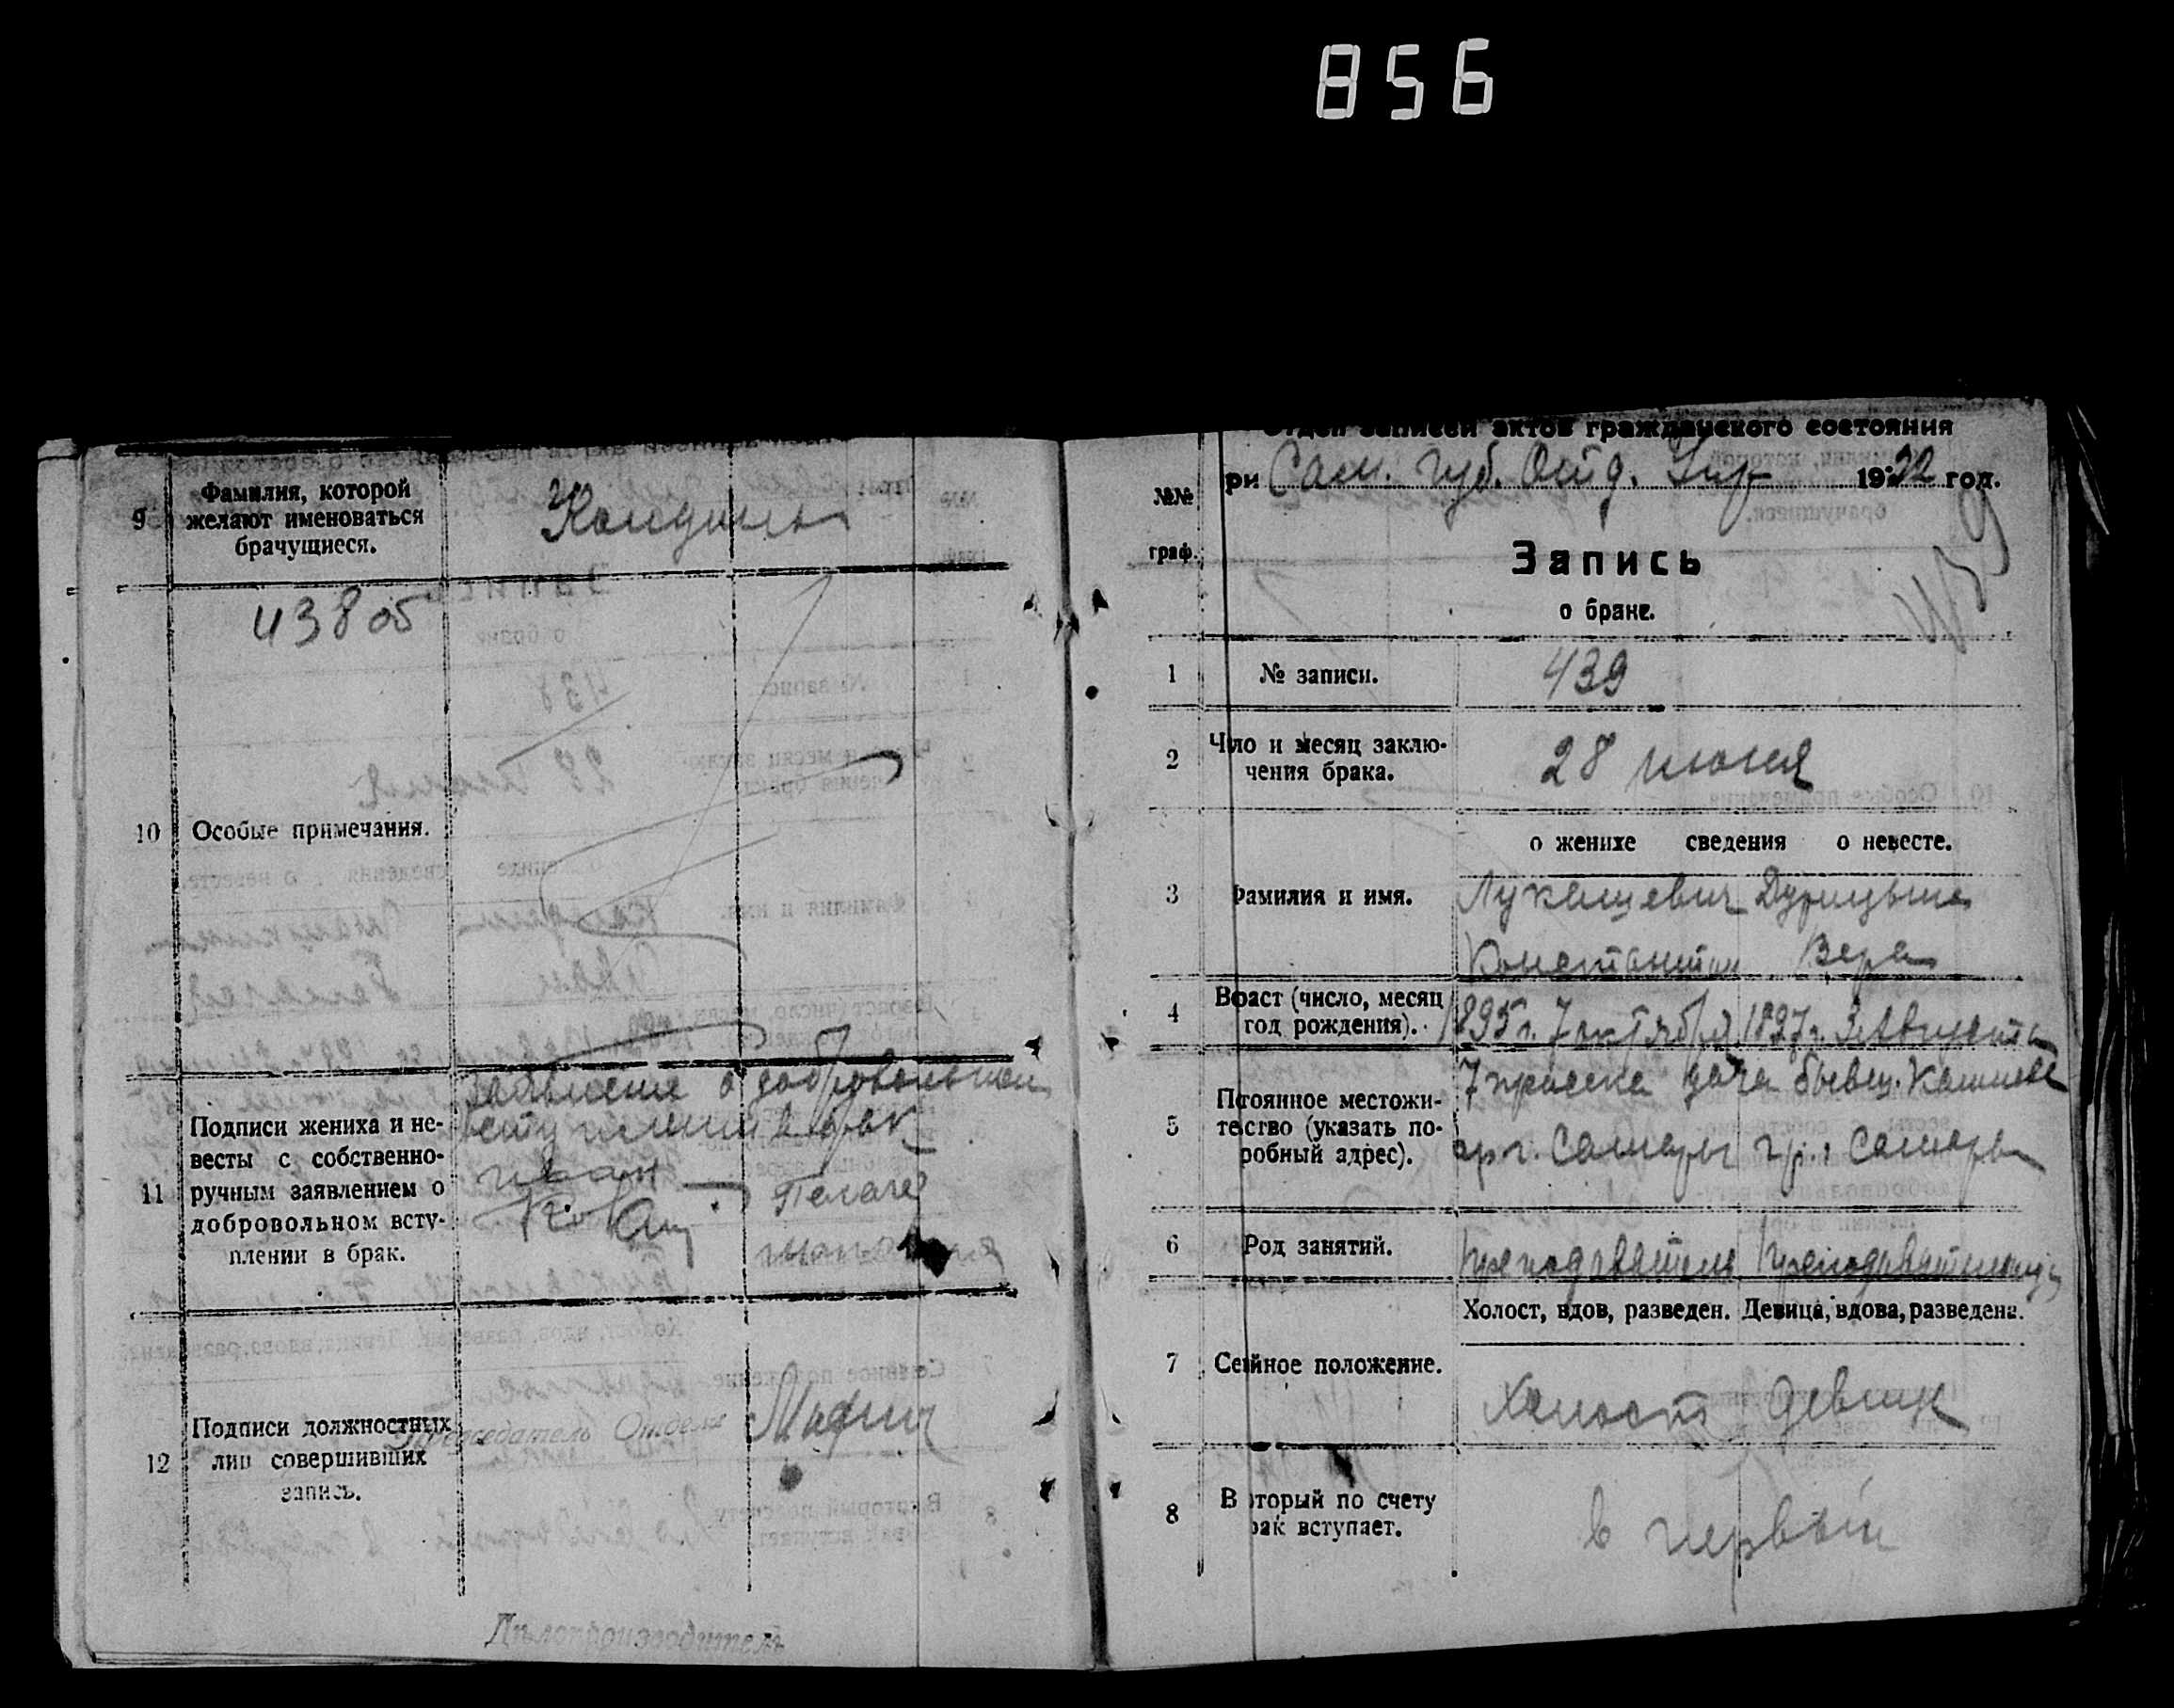 856
9
Фамилия, которой
желают именоваться
брачущиеся.
438 об
10
Особые примечания.
11
Подписи жениха и не-
весты с собственно-
ручным заявлением о
добровольном всту-
плении в брак.
заявление о добровольном
вступлении в брак
Иван
Пелагея
12
Подписи должностных
лиц совершивших
запись.
Председатель Отдела
Делопроизводитель
Отдел записей актов гражданского состояния
ри Сам. Губ. Отд. 1922 год.
№№
граф.
Запись
о браке.
1
№ записи.
439
2
Число и месяц заклю-
чения брака.
28 июня
о женихе сведения о невесте.
3
Фамилия и имя.
Лукашевич
Константин Вера
4
Возраст (число, месяц
год рождения).
1895 г. 7 октября 1897 г. 3 Августа
5
Постоянное местожи-
тельство (указать по-
дробный адрес).
7 просека дача бывш.
гр. г. Самары гр. г. Самары
6
Род занятий.
преподаватель преподавательница
Холост, вдов, разведен. Девица, вдова, разведена.
7
Семейное положение.
Холост девица
8
В который по счету
брак вступает.
в первый